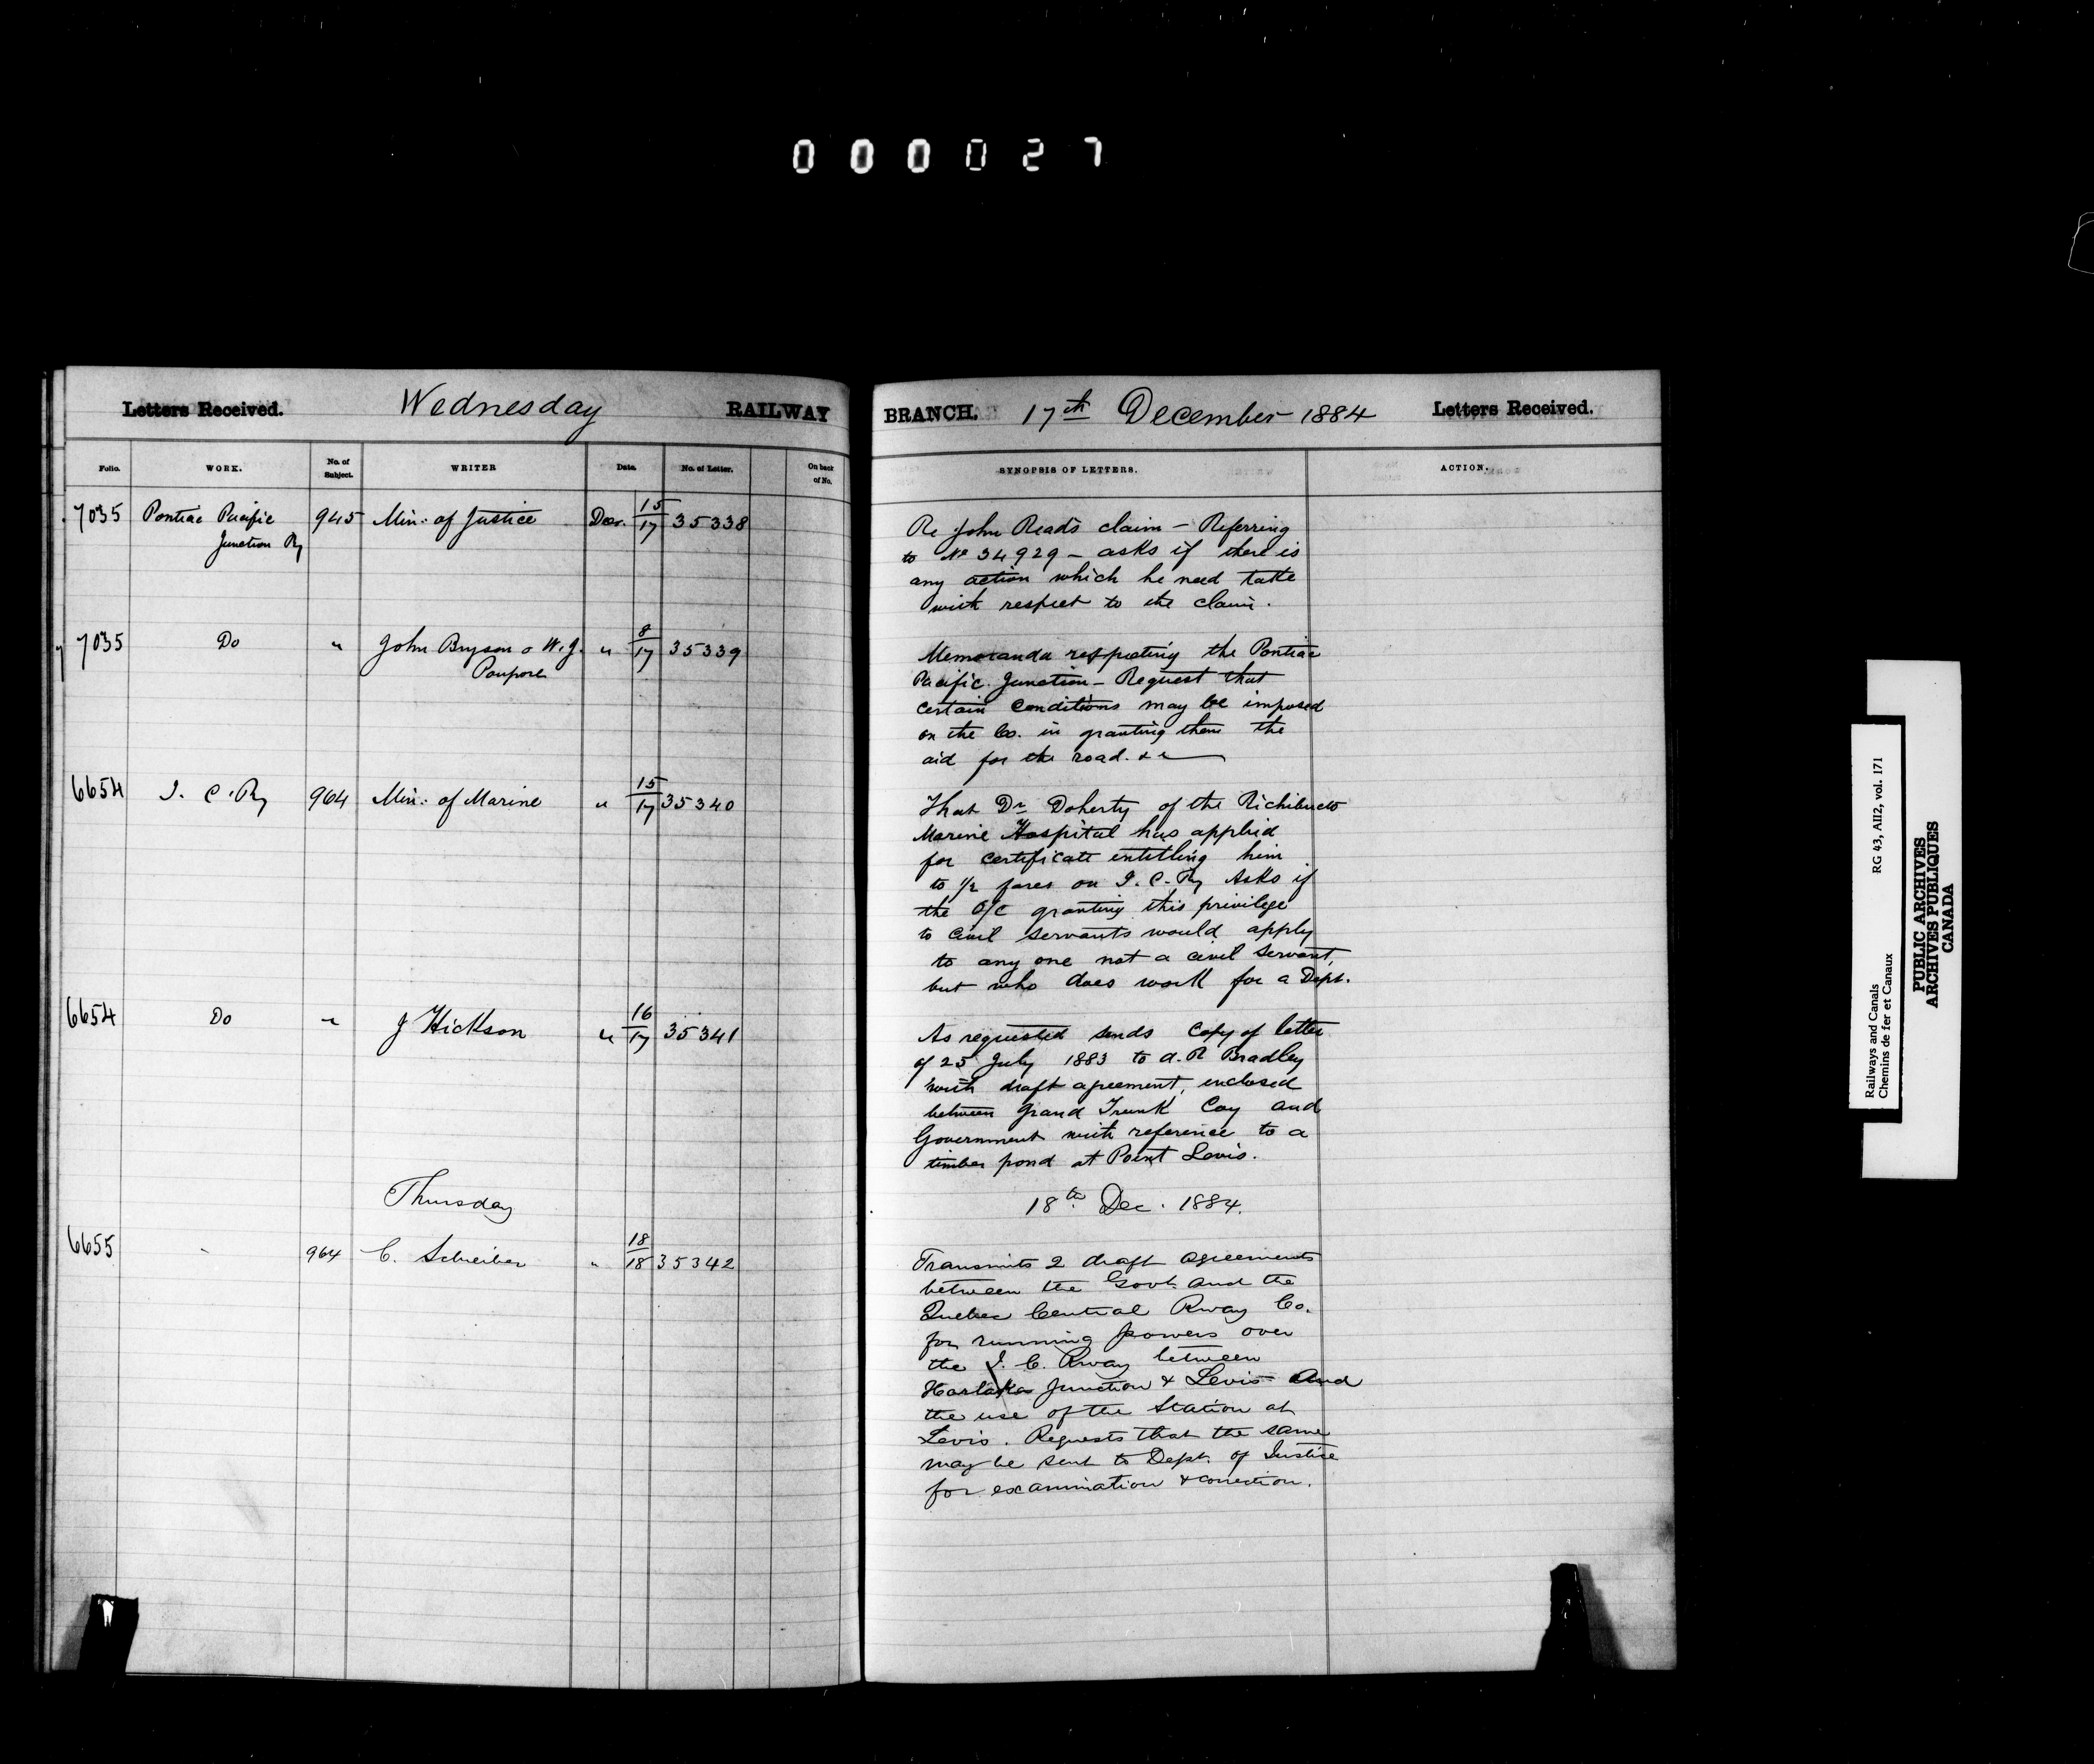 000027
Letters Received. Wednesday RAILWAY
Folio. WORK. No. of Subject. WRITER Date. No. of Letter. On back of No.
7035 Pontiac Pacific 945 Min. of Justice Dec. 15/17 35338
Junction Ry
7035 Do " John Bryson & W. J. " 8/17 35339
Poupore
6654 I. C. Ry 964 Min. of Marine " 15/17 35340
6654 Do " J Hickson " 16/17 35341
Thursday
6655 " 964 C. Schreiber " 18/18 35342
BRANCH. 17th December 1884 Letters Received.
SYNOPSIS OF LETTERS. ACTION.
Re John Read's claim - Referring
to No 34929 - asks if there is
any action which he need take
with respect to the claim.
Memoranda respecting the Pontiac
Pacific Junction - Request that
certain conditions may be imposed
on the Co. in granting them the
aid for the road. &c
That Dr. Doherty of the Richibucto
Marine Hospital has applied
for certificate entitling him
to 1/2 fares on I. C. Ry Asks if
the O/C granting this privilege
to civil servants would apply
to any one not a civil servant,
but who does work for a Dept.
As requested sends copy of letter
of 25 July 1883 to A. R Bradley
with draft agreement, enclosed
between Grand Trunk Coy and
Government with reference to a
timber pond at Point Levis.
18th Dec. 1884.
Transmits 2 draft agreements
between the Govt. and the
Quebec Central Rway Co.
for running powers over
the I. C. Rway between
Harlaka Junction & Levis and
the use of the Station at
Levis. Requests that the same
may be sent to Dept. of Justice
for examination & correction.
Railways and Canals RG 43, AII2, vol. 171
Chemins de fer et Canaux
PUBLIC ARCHIVES
ARCHIVES PUBLIQUES
CANADA